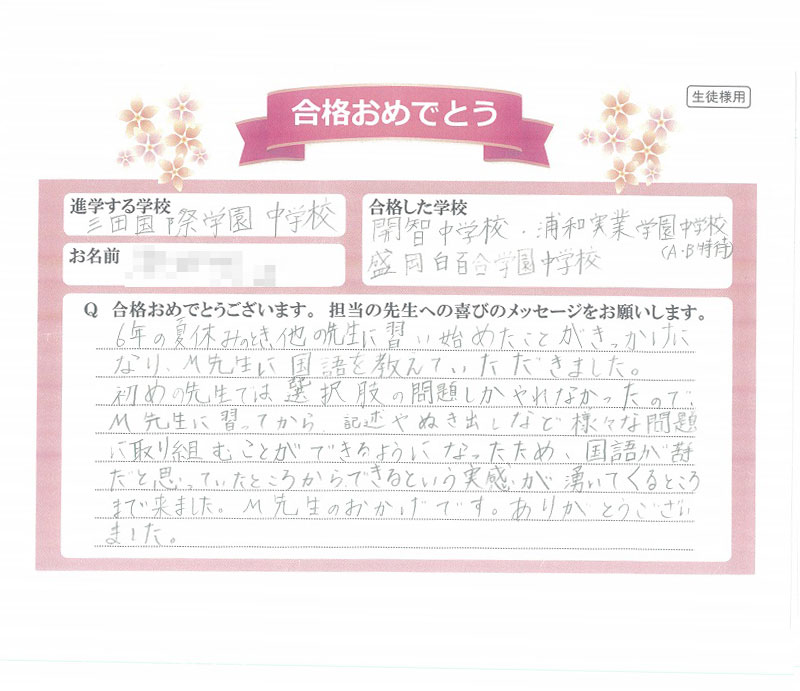 合格おめでとう
生徒様用
進学する学校
三田国際学園中学校
合格した学校
開智中学校・浦和実業学園中学校
(A・B特待)
盛岡白百合学園中学校
お名前
Q 合格おめでとうございます。担当の先生への喜びのメッセージをお願いします。
6年の夏休みのとき、他の先生に習い始めたことがきっかけに
なり、M先生に国語を教えていただきました。
初めの先生では選択肢の問題しかやれなかったので、
M先生に習ってから、記述やぬき出しなど様々な問題
に取り組むことができるようになったため、国語が苦手
だと思っていたところからできるという実感が湧いてくるところ
まで来ました。M先生のおかげです。ありがとうござい
ました。